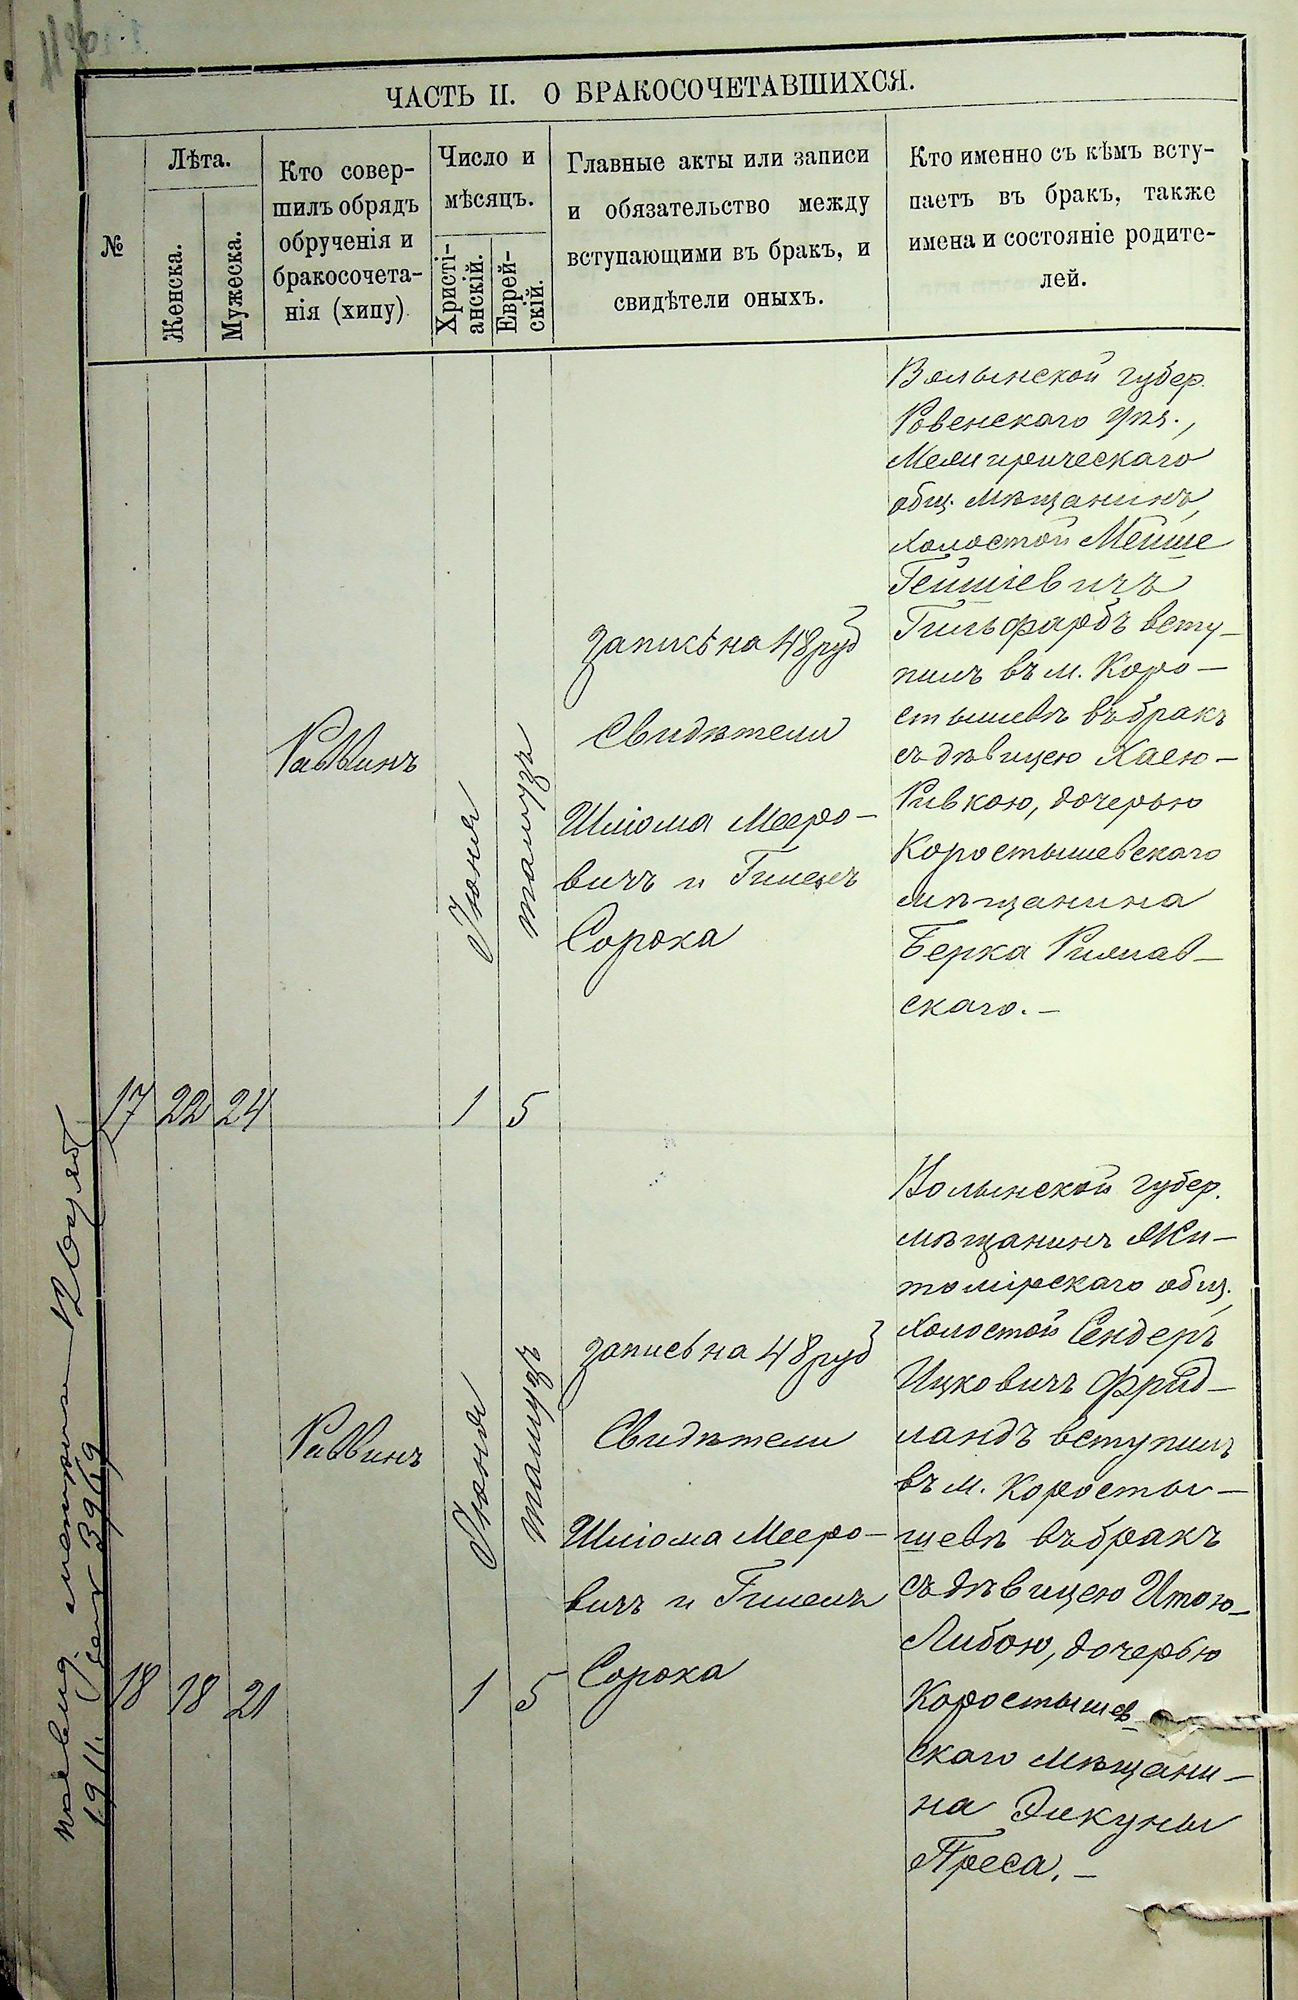 ЧАСТЬ II. О БРАКОСОЧЕТАВШИХСЯ.
№
Лѣта.
Женска.
Мужеска.
Кто совер-
шилъ обрядъ
обрученія и
бракосочета-
нія (хипу).
Число и
мѣсяцъ.
Христі-
анскій.
Еврей-
скій.
Главные акты или записи
и обязательство между
вступающими въ бракъ, и
свидѣтели оныхъ.
Кто именно съ кѣмъ всту-
паетъ въ бракъ, также
имена и состояніе родите-
лей.
17
22
24
Раввинъ
Іюня
1
тамузъ
5
Запись на 48 руб
Свидѣтели
Шліома Мееро-
вичъ и Гимель
Сорока
Волынской губер.
Ровенского уѣз.,
Межиричскаго
общ. мѣщанинъ,
холостой Мейше
Гейшіевичъ
Гильфарбъ всту-
пилъ въ м. Коро-
стышевѣ въ бракъ
съ дѣвицею Хаею-
Ривкою, дочерью
Коростышевскаго
мѣщанина
Берка Римав-
скаго.-
18
18
21
Раввинъ
Іюня
1
тамузъ
5
запись на 48 руб
Свидѣтели
Шліома Мееро-
вичъ и Гимель
Сорока
Волынской губер.
мѣщанинъ Жи-
томірскаго общ.,
холостой Сендеръ
Ицковичъ Фрид-
ландъ вступилъ
въ м. Коросты-
шевѣ въ бракъ
съ дѣвицею Итою-
Либою, дочерью
Коростышев-
скаго мѣщани-
на Элькуны
Преса.-
1911. 3969